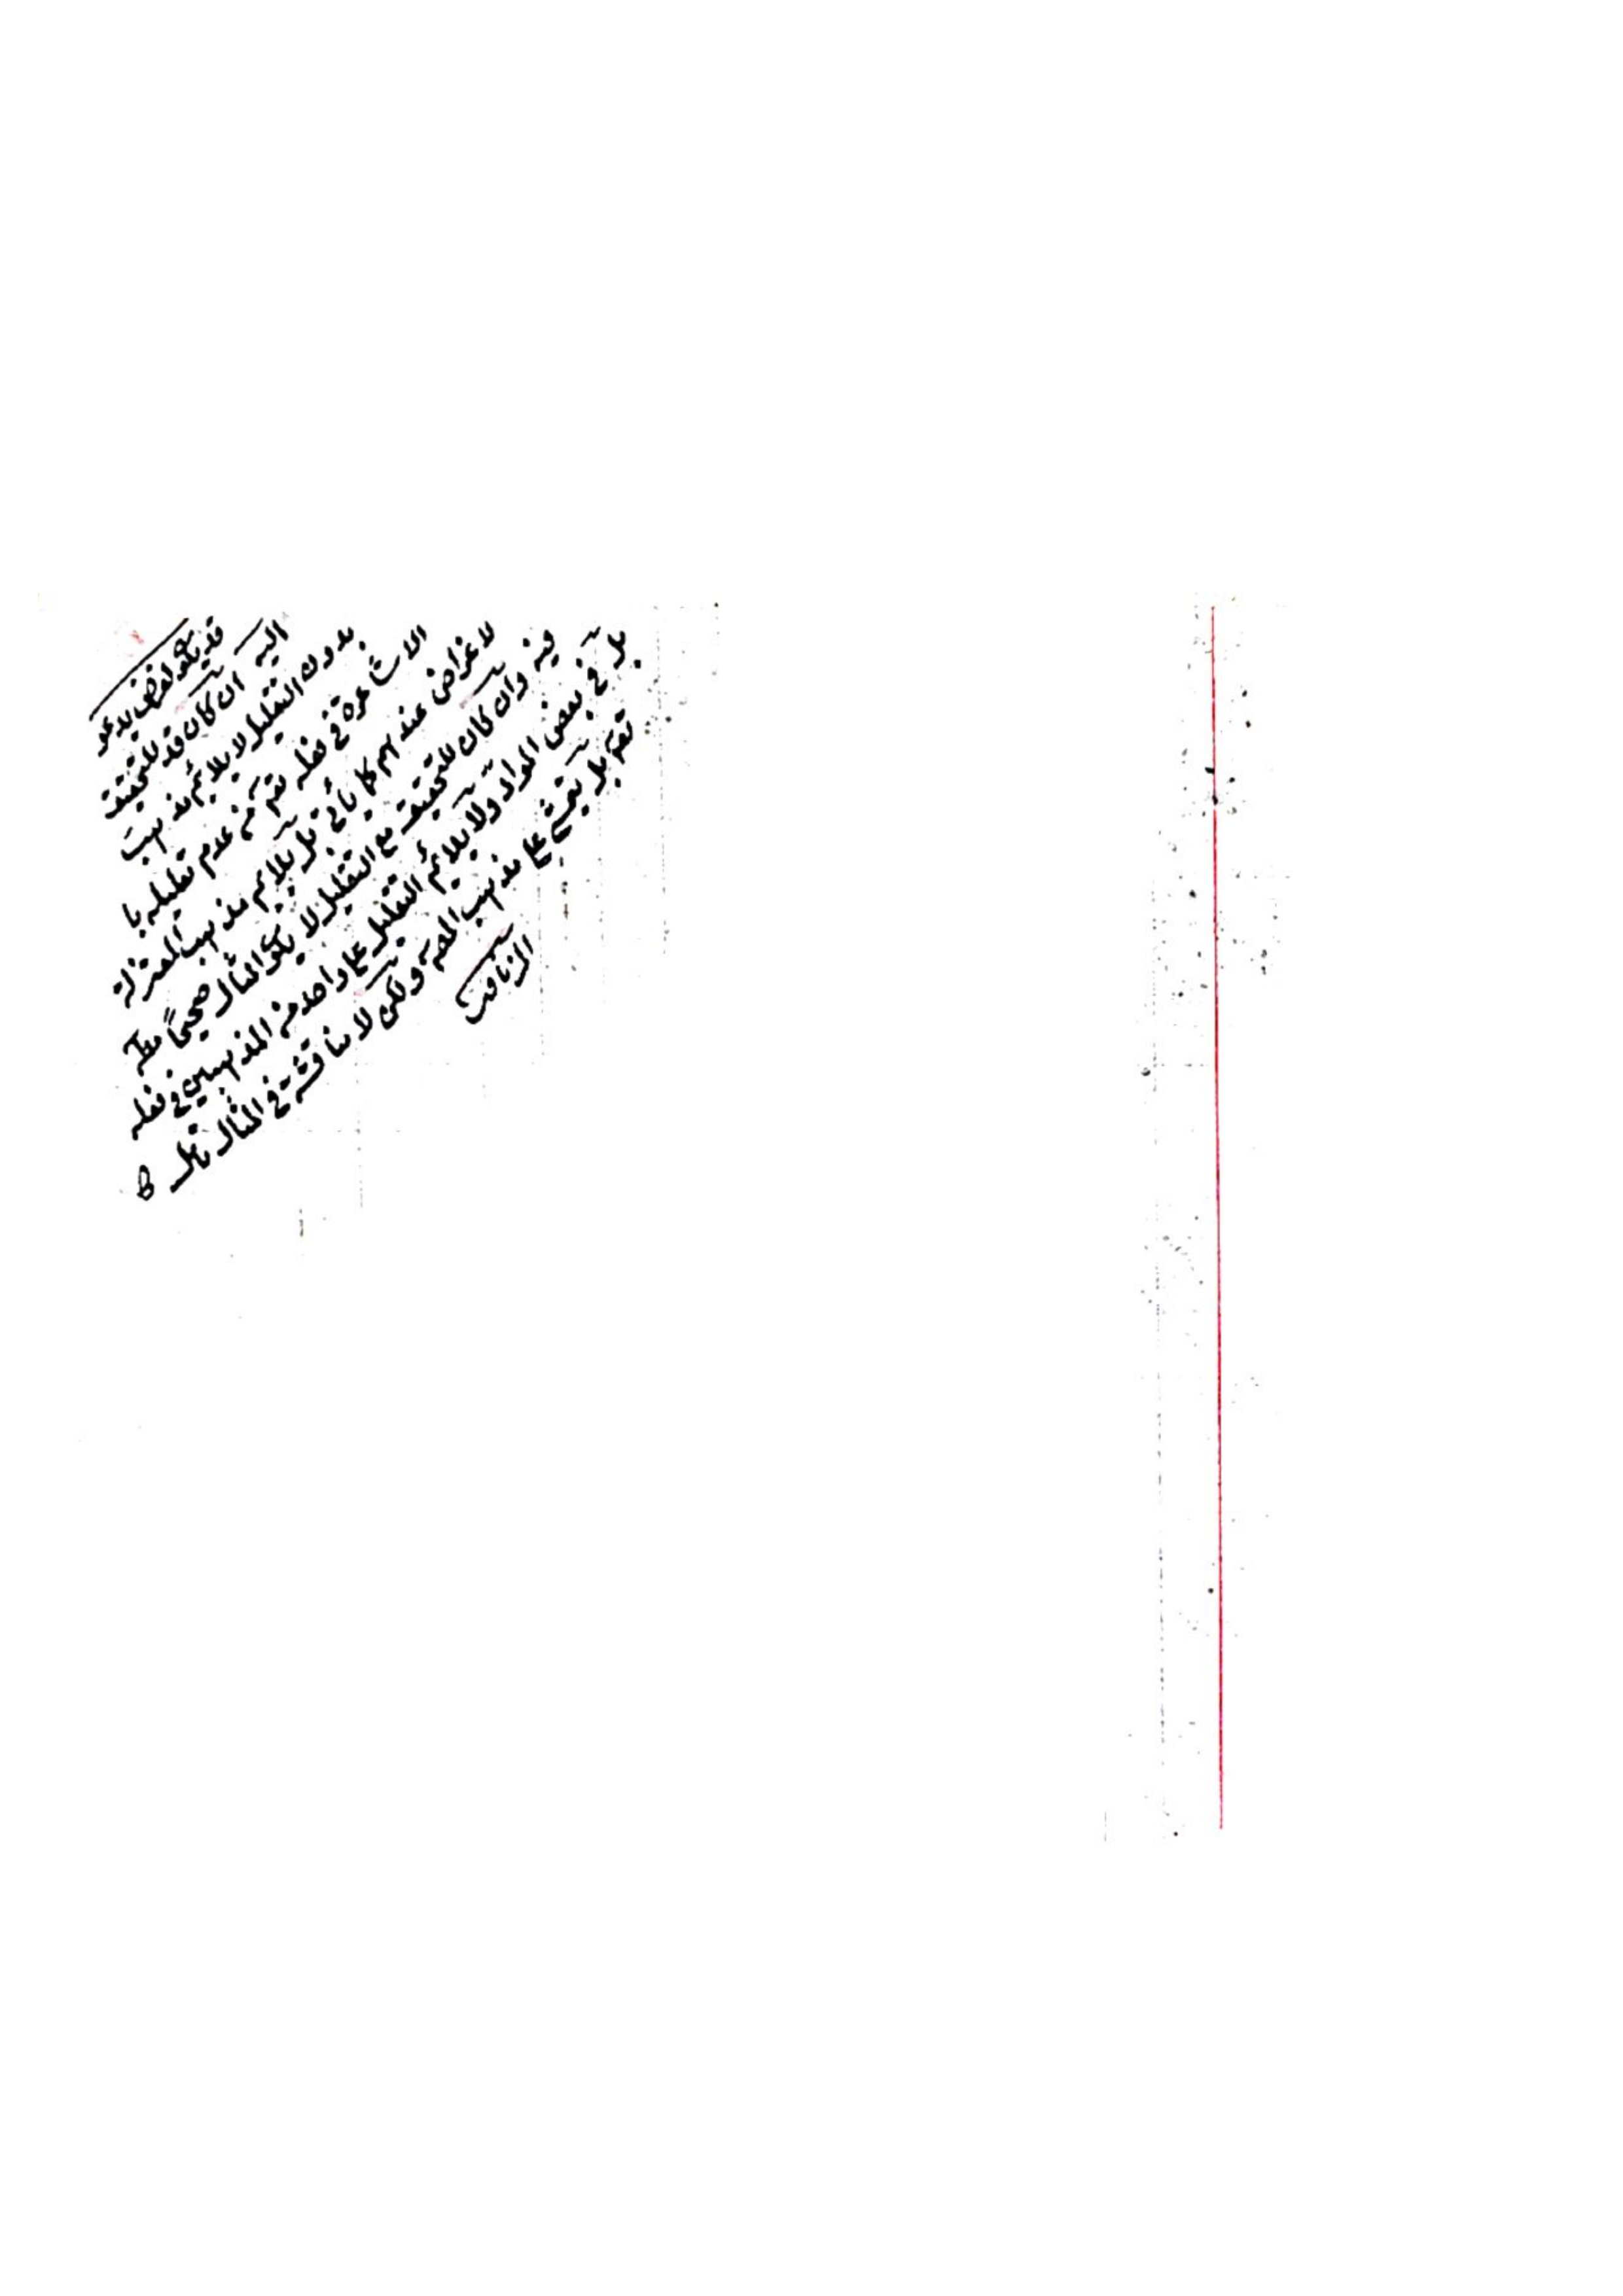 قد يكو لغرض يدعو
اليه ان كان قد للتحقيق
بدون التقليل لا يلايم مذهب
الاشاعرة في فعله تع من عدم تعليله با
لاغراض عندهم كما يأتي بل يلايم مذهب المعتزلة
فيه وان كان للتحقيق مع التقليل لا يكو المثال صحيحاً
بل في بعض المواد ولا يلايم التقليل على واحد من المذهبين في فعله
تع بل على مذهب ولكن لا مناقشة في المثال